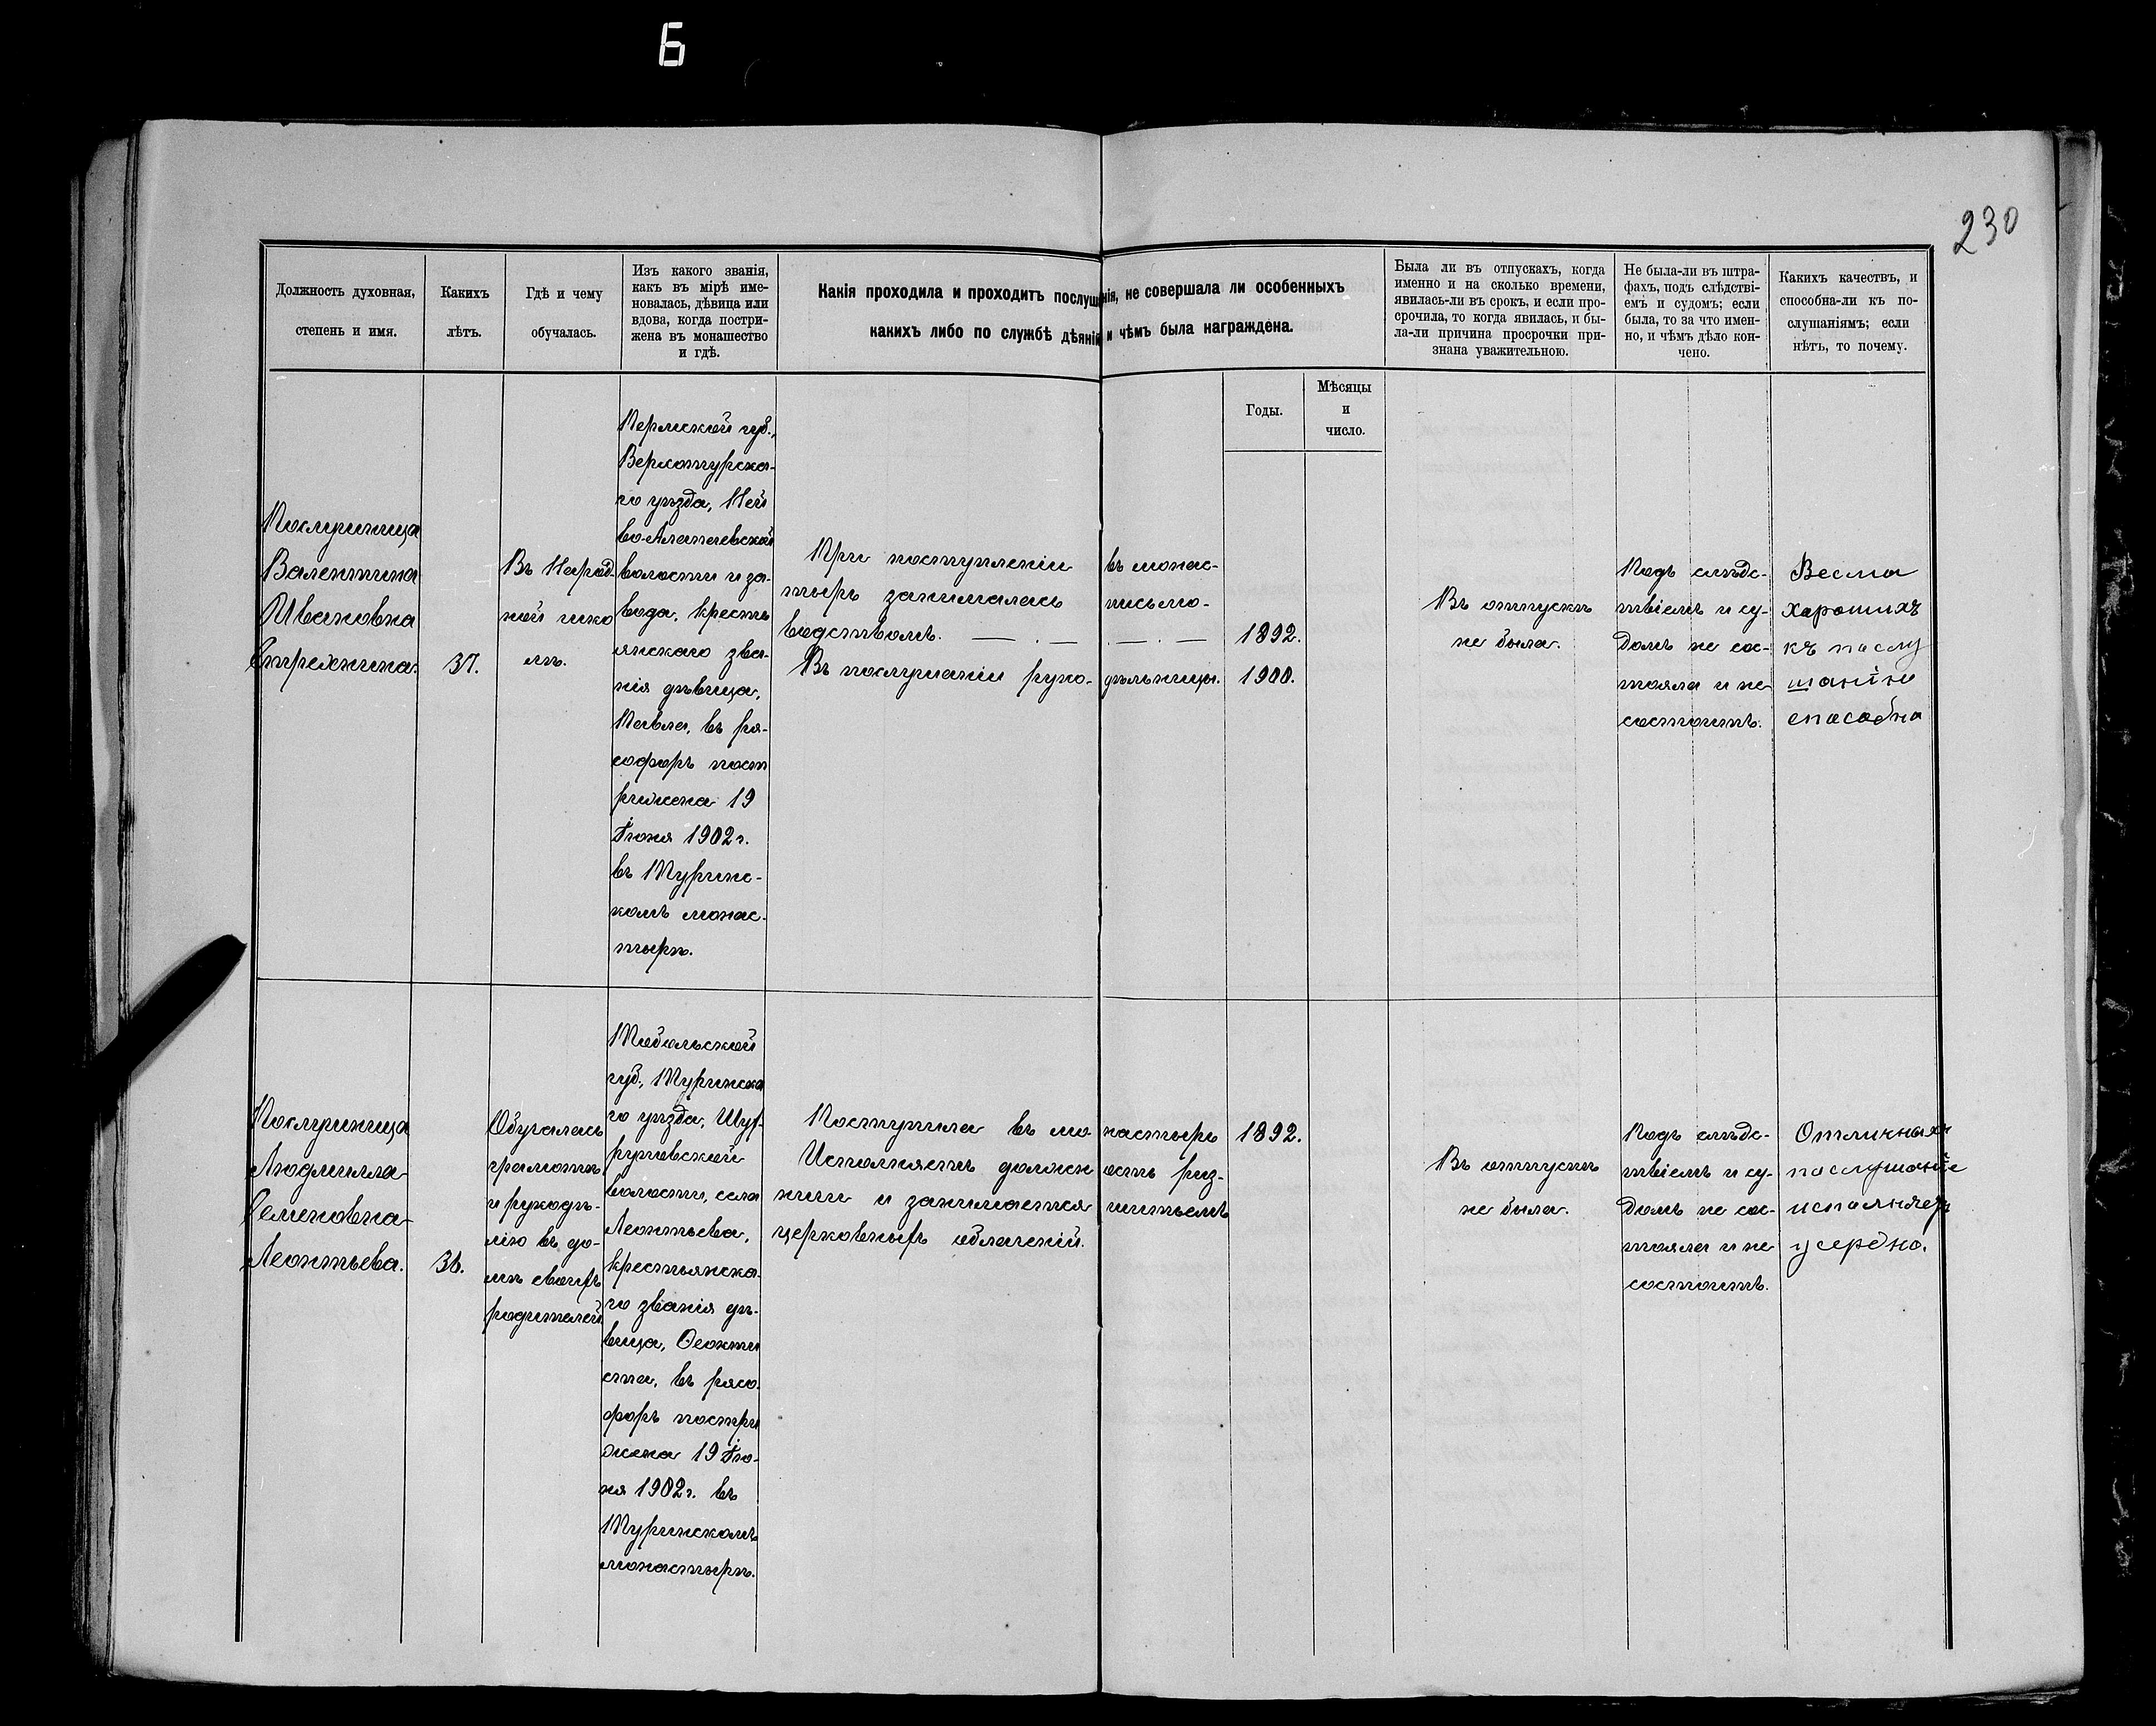 Б
230
Должность духовная,
степень и имя.
Какихъ
лѣтъ.
Гдѣ и чему
обучалась.
Изъ какого званія,
какъ въ мірѣ име-
новалась, дѣвица или
вдова, когда постри-
жена въ монашество
и гдѣ.
Какія проходила и проходитъ послушанія, не совершала ли особенныхъ
какихъ либо по службѣ дѣяній и чѣмъ была награждена.
Годы.
Мѣсяцы
и
число.
Была ли въ отпускахъ, когда
именно и на сколько времени,
явилась-ли въ срокъ, и если про-
срочила, то когда явилась, и бы-
ла-ли причина просрочки при-
знана уважительною.
Не была-ли въ штра-
фахъ, подъ слѣдстві-
емъ и судомъ; если
была, то за что имен-
но, и чѣмъ дѣло кон-
чено.
Какихъ качествъ, и
способна-ли къ по-
слушаніямъ; если
нѣтъ, то почему.
Послушница
Валентина
Ивановна
37.
Въ Народ-
ной шко
лѣ.
Пермской губ.,
Верхотурска-
го уѣзда, Ней
во-Алапаевской
волости и за-
вода, кресть
янскаго зва-
нія дѣвица,
Павла, въ ря-
софоръ пост
рижена 19
Іюня 1902 г.
въ Турин-
комъ монас-
тырѣ.
При поступленіи въ монас-
тырь занималась письмо-
водствомъ. — . — — . — 1892.
Въ послушаніи руко- дѣльницы. 1900.
Въ отпускѣ
не была.
Подъ слѣдс-
твіемъ и су-
домъ не сос-
тояла и не
состоитъ.
Весма
хорошихъ
къ послу
шанію
способна
Послушница
Людмилла
Семеновна
Леонтьева.
36.
Обучалась
грамотѣ
и рукодѣ-
лію въ до-
мѣ своихъ
родителей
Тобольской
губ., Туринска
го уѣзда, Шух-
руповской
волости, села
Леонтьева,
крестьянска-
го званія дѣ-
вица, Ѳеокти
ста, въ рясо
форъ постри
жена 19 Ію-
ня 1902 г. въ
Туринскомъ
монастырѣ.
Поступила въ мо настырь 1892.
Исполняетъ должн ость риз-
ничи и занимается шитьемъ
церковныхъ облаченій.
Въ отпускѣ
не была.
Подъ слѣдс-
твіемъ и су-
домъ не сос-
тояла и не
состоитъ.
Отличныхъ
послушаніе
исполняетъ
усердно.